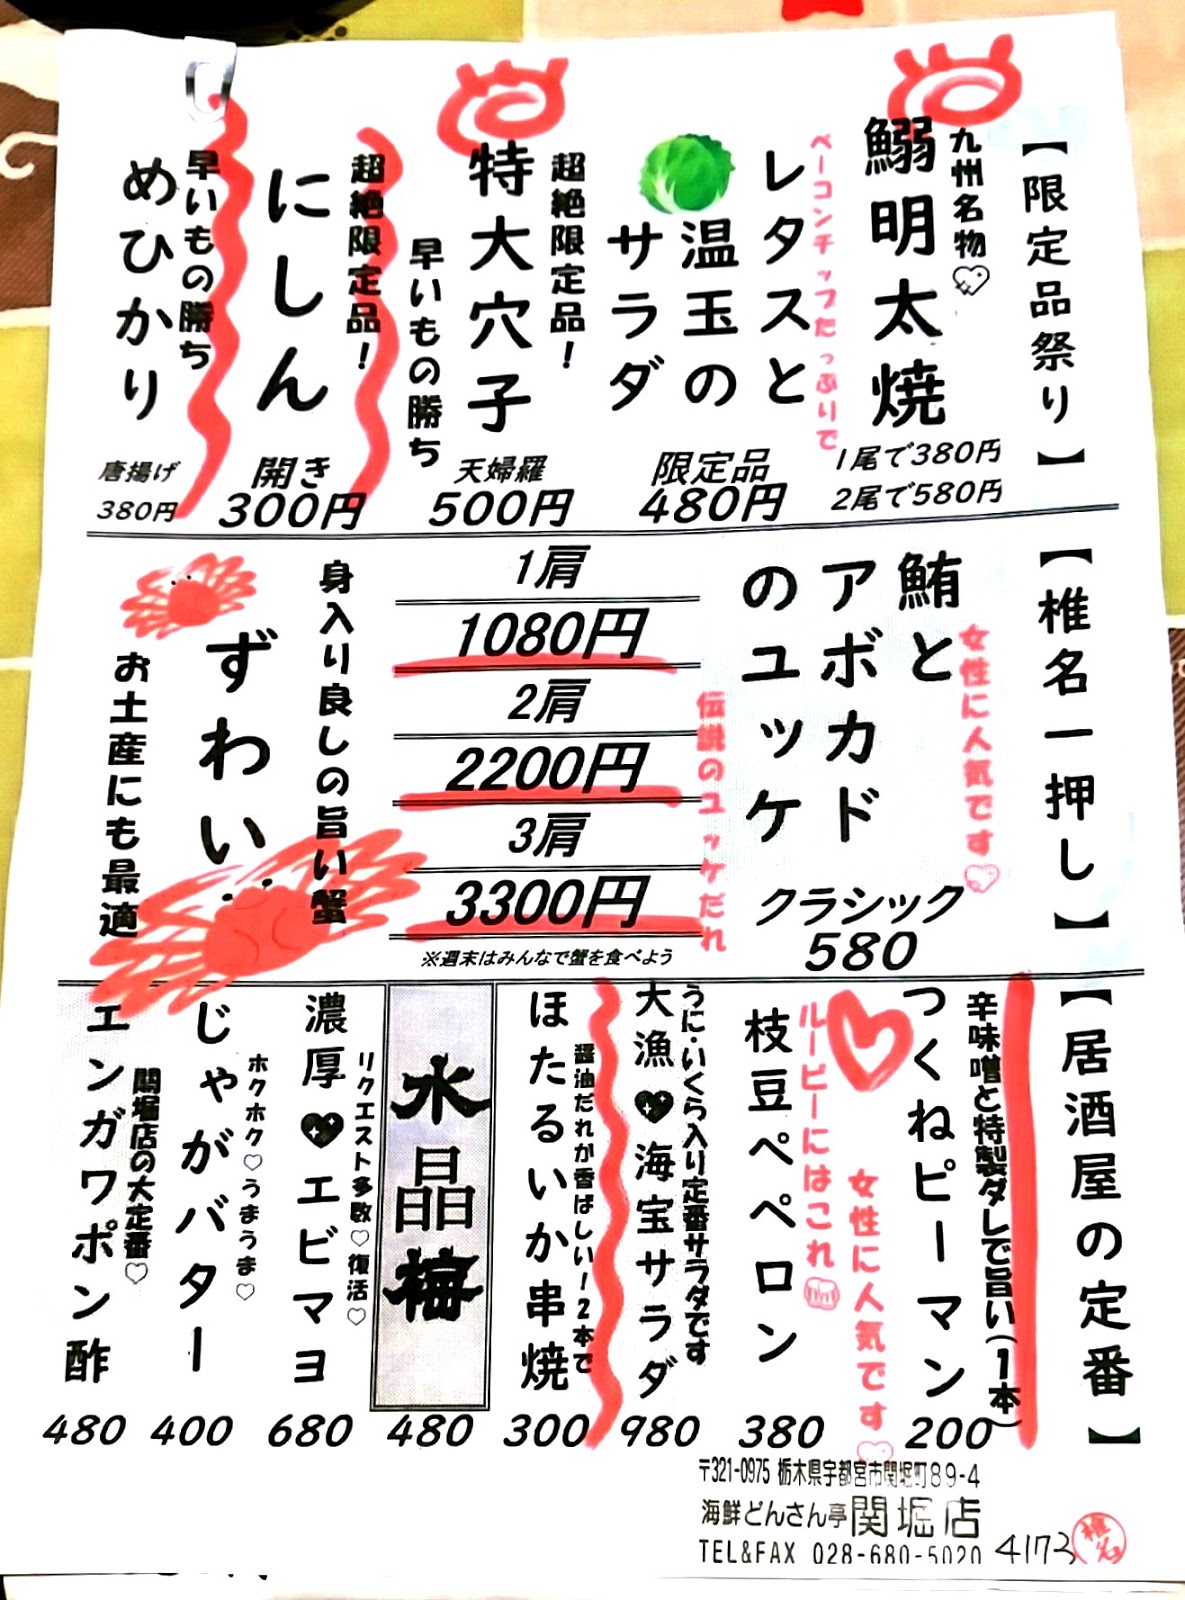 【限定品祭り】
九州名物♡
鰯明太焼
1尾で380円
2尾で580円
ベーコンチップたっぷりで
レタスと
温玉の
サラダ
限定品
480円
超絶限定品！
特大穴子
早いもの勝ち
天婦羅
500円
超絶限定品！
にしん
開き
300円
早いもの勝ち
めひかり
唐揚げ
380円
【椎名一押し】
女性に人気です♡
鮪と
アボカド
のユッケ
クラシック
580
伝説のユッケだれ
1肩
1080円
2肩
2200円
3肩
3300円
※週末はみんなで蟹を食べよう
身入り良しの旨い蟹
ずわい
お土産にも最適
【居酒屋の定番】
辛味噌と特製ダレで旨い（1本）
つくねピーマン
200
女性に人気です♡
ルービーにはこれ
枝豆ペペロン
380
うに・いくら入り定番サラダです
大漁♥海宝サラダ
980
醤油だれが香ばしい！2本で
ほたるいか串焼
300
水晶梅
480
リクエスト多数♡復活♡
濃厚♥エビマヨ
680
ホクホク♡うまうま♡
じゃがバター
400
関堀店の大定番♡
エンガワポン酢
480
〒321-0975 栃木県宇都宮市関堀町89-4
海鮮どんさん亭 関堀店
TEL&FAX 028-680-5020
4173
椎名